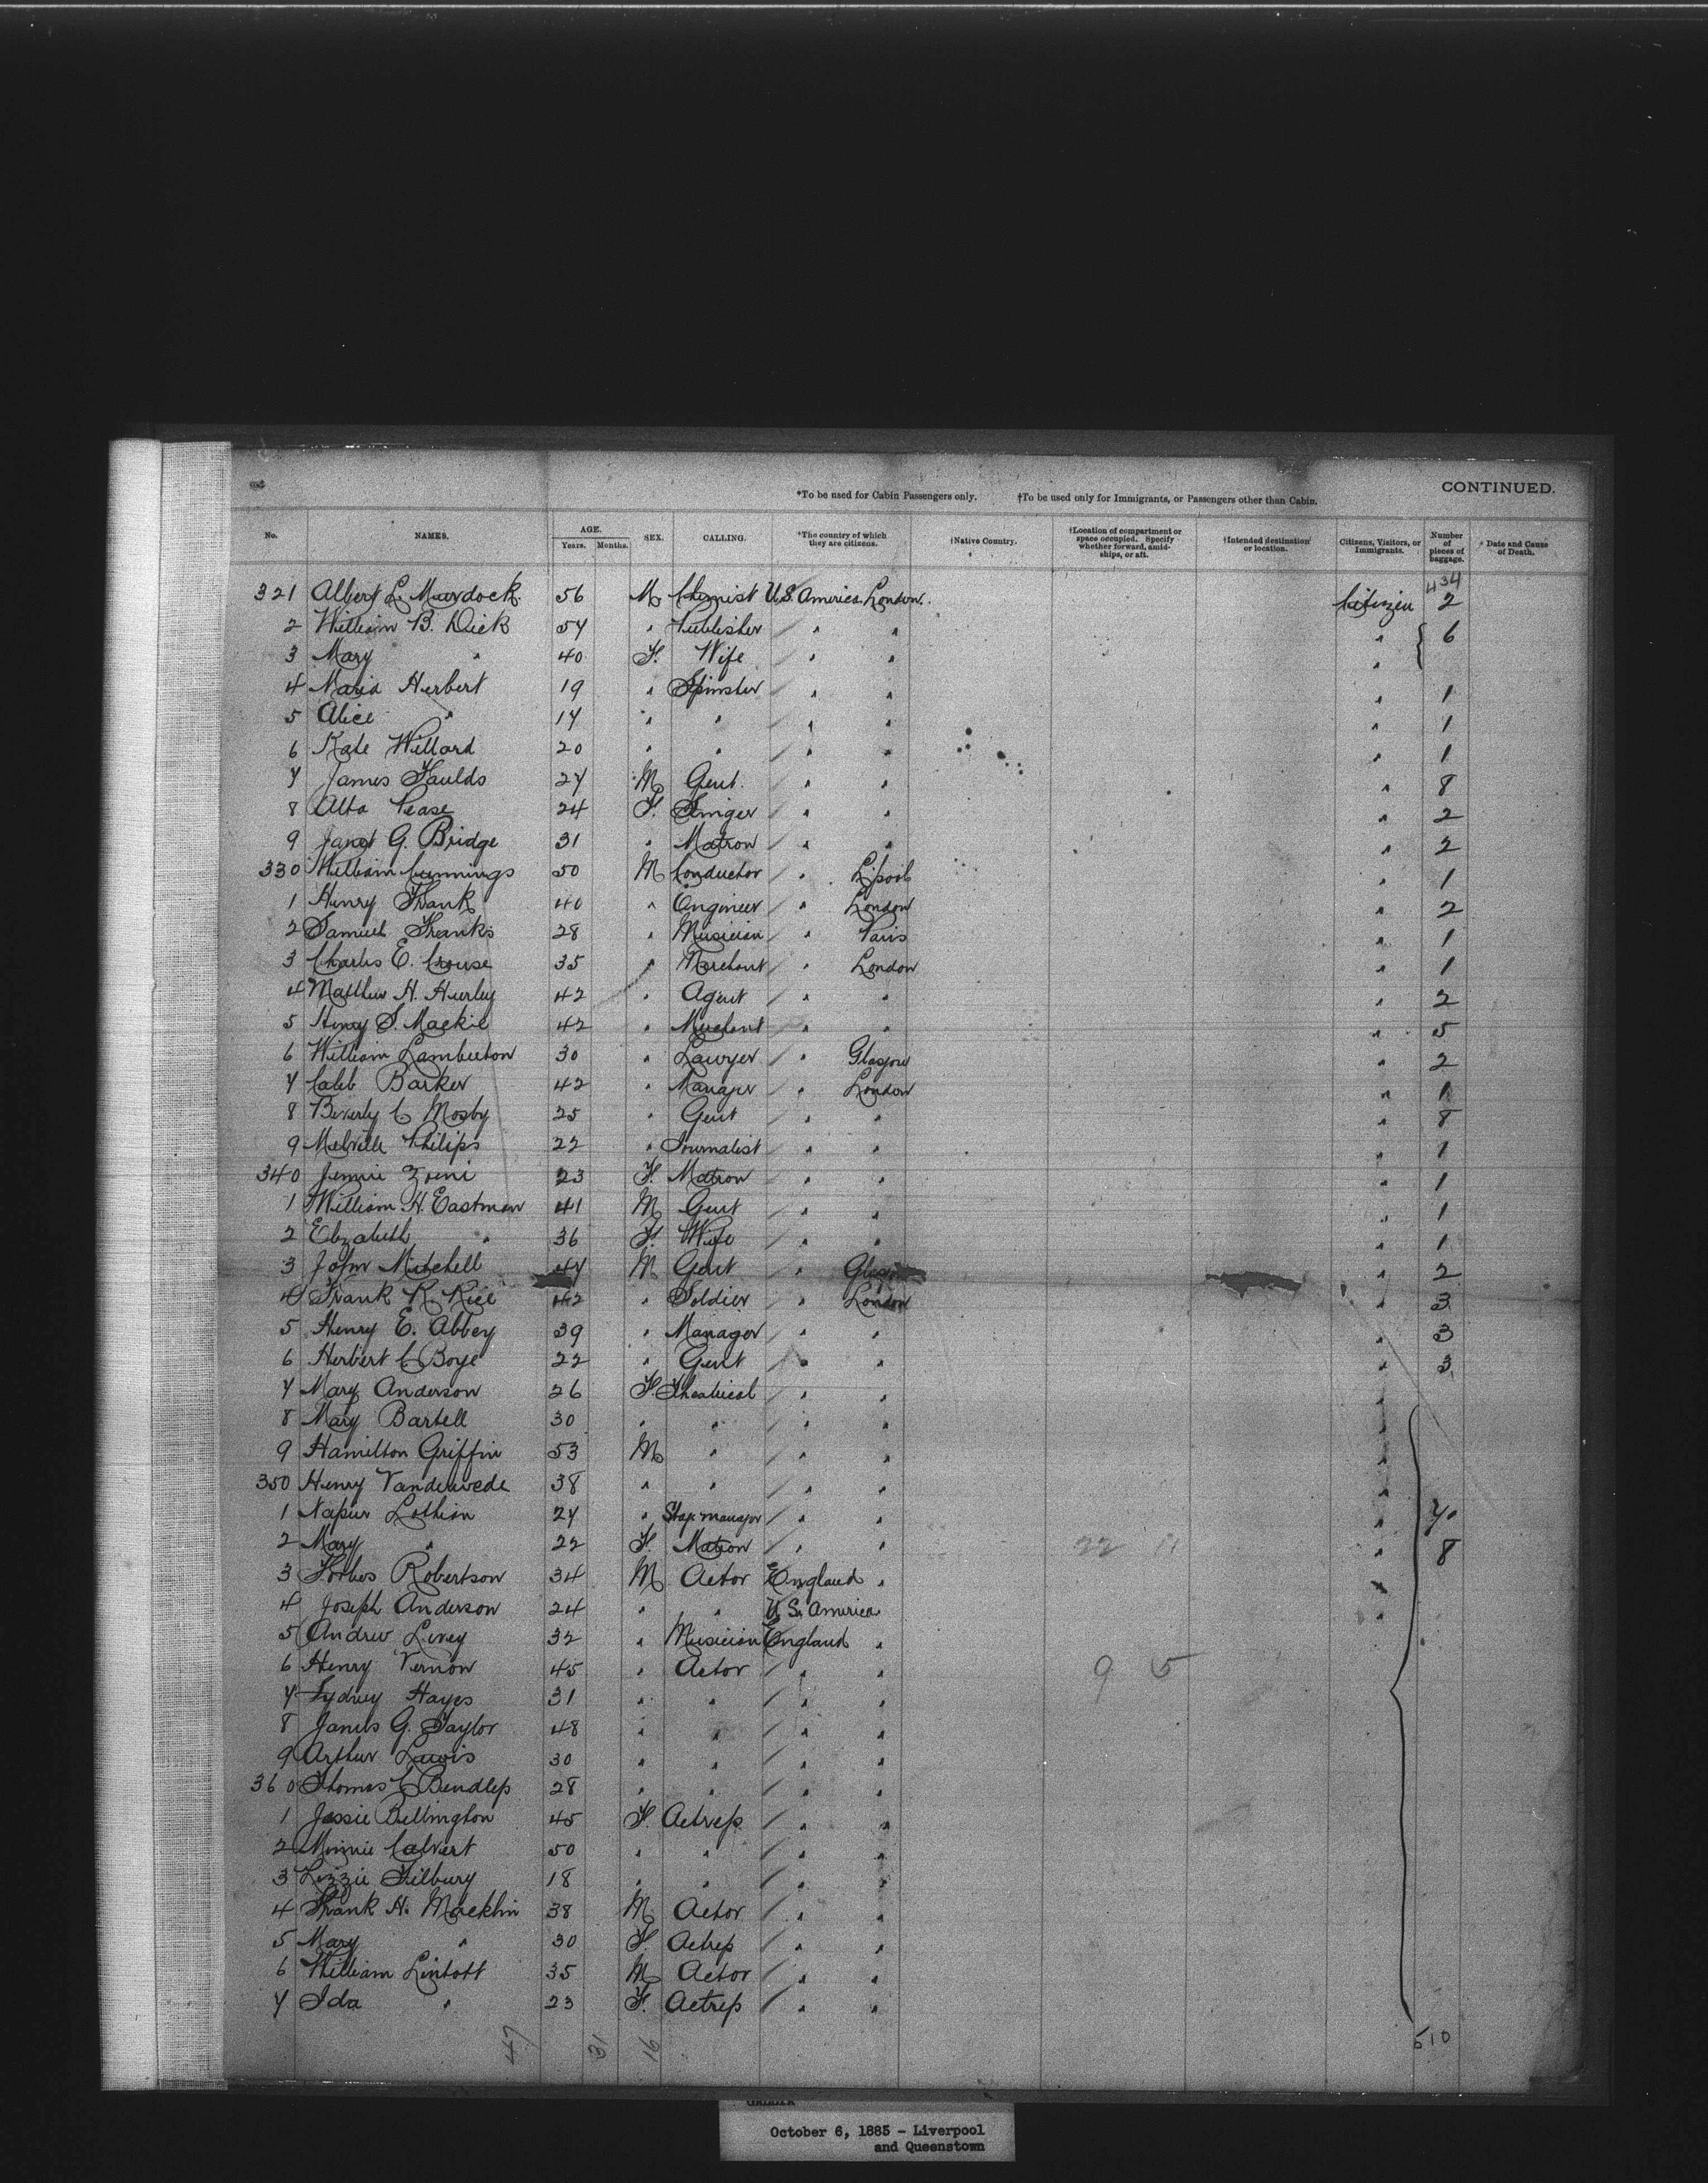 CONTINUED.
*To be used for Cabin Passengers only. †To be used only for Immigrants, or Passengers other than Cabin.
No. NAMES. AGE. Years. Months. SEX. CALLING. *The country of which they are citizens. †Native Country. †Location of compartment or space occupied. Specify whether forward, amidships, or aft. †Intended destination or location. Citizens, Visitors, or Immigrants. Number of pieces of baggage. Date and Cause of Death.
434
321 Albert L. Murdock 56 M Chemist U.S. America London. Citizen 2
2 William B. Dick 54 " Publisher " " " 6
3 Mary " 40 F. Wife " " "
4 Maria Herbert 19 " Spinster " " " 1
5 Alice " 14 " " " " " 1
6 Kate Willard 20 " " " " " 1
7 James Faulds 27 M Gent. " " " 8
8 Alta Pease 24 F. Singer " " " 2
9 Janet G. Bridge 31 " Matron " " " 2
330 William Cummings 50 M Conductor " L'pool " 1
1 Henry Frank 40 " Engineer " London " 2
2 Samuel Franks 28 " Musician " Paris " 1
3 Charles E. Crouse 35 " Merchant " London " 1
4 Matthew H. Hurley 42 " Agent " " " 2
5 Henry S. Mackie 42 " Merchant " " " 5
6 William Lamberton 30 " Lawyer " Glasgow " 2
7 Caleb Barker 42 " Manager " London " 1
8 Beverly C Mosby 25 " Gent " " " 8
9 Melville Philips 22 " Journalist " " " 1
340 Jennie 23 F. Matron " " " 1
1 William H. Eastman 41 M Gent " " " 1
2 Elizabeth " 36 F. Wife " " " 1
3 John Mitchell M Gent " Glasgow " 2
4 Frank R. Rice 42 " Soldier " London " 3
5 Henry E. Abbey 39 " Manager " " " 3
6 Herbert C Boye 22 " Gent " " " 3
7 Mary Anderson 26 F. Theatrical " " "
8 Mary Bartell 30 " " " " "
9 Hamilton Griffin 53 M " " " "
350 Henry Vanderwede 38 " " " " "
1 Napier Lothian 27 " Stage manager " " " 7
2 Mary " 22 F. Matron " " 22 11 " 8
3 Forbes Robertson 34 M Actor England "
4 Joseph Anderson 24 " " U.S. America "
5 Andrew Levey 32 " Musician England "
6 Henry Vernon 45 " Actor " " 9 5
7 Sydney Hayes 31 " " " "
8 James G. Taylor 48 " " " "
9 Arthur Lewis 30 " " " "
360 Thomas C Bindless 28 " " " "
1 Jessie Bellington 45 F. Actress " "
2 Minnie Calvert 50 " " " "
3 Lizzie Tilbury 18 " " " "
4 Frank H. Macklin 38 M Actor " "
5 Mary " 30 F. Actress " "
6 William Lintott 35 M Actor " "
7 Ida " 23 F. Actress " "
47 31 16 510
October 6, 1885 - Liverpool
and Queenstown